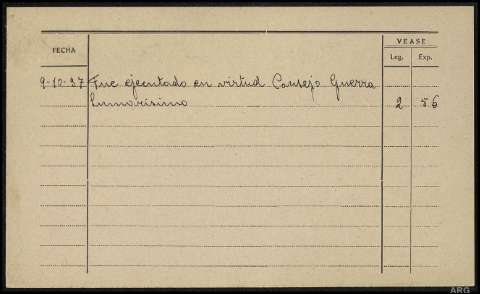 FECHA
VEASE
Leg. Exp.
9-10-37 Fue ejecutado en virtud Consejo Guerra
Sumarísimo 2 56
ARG